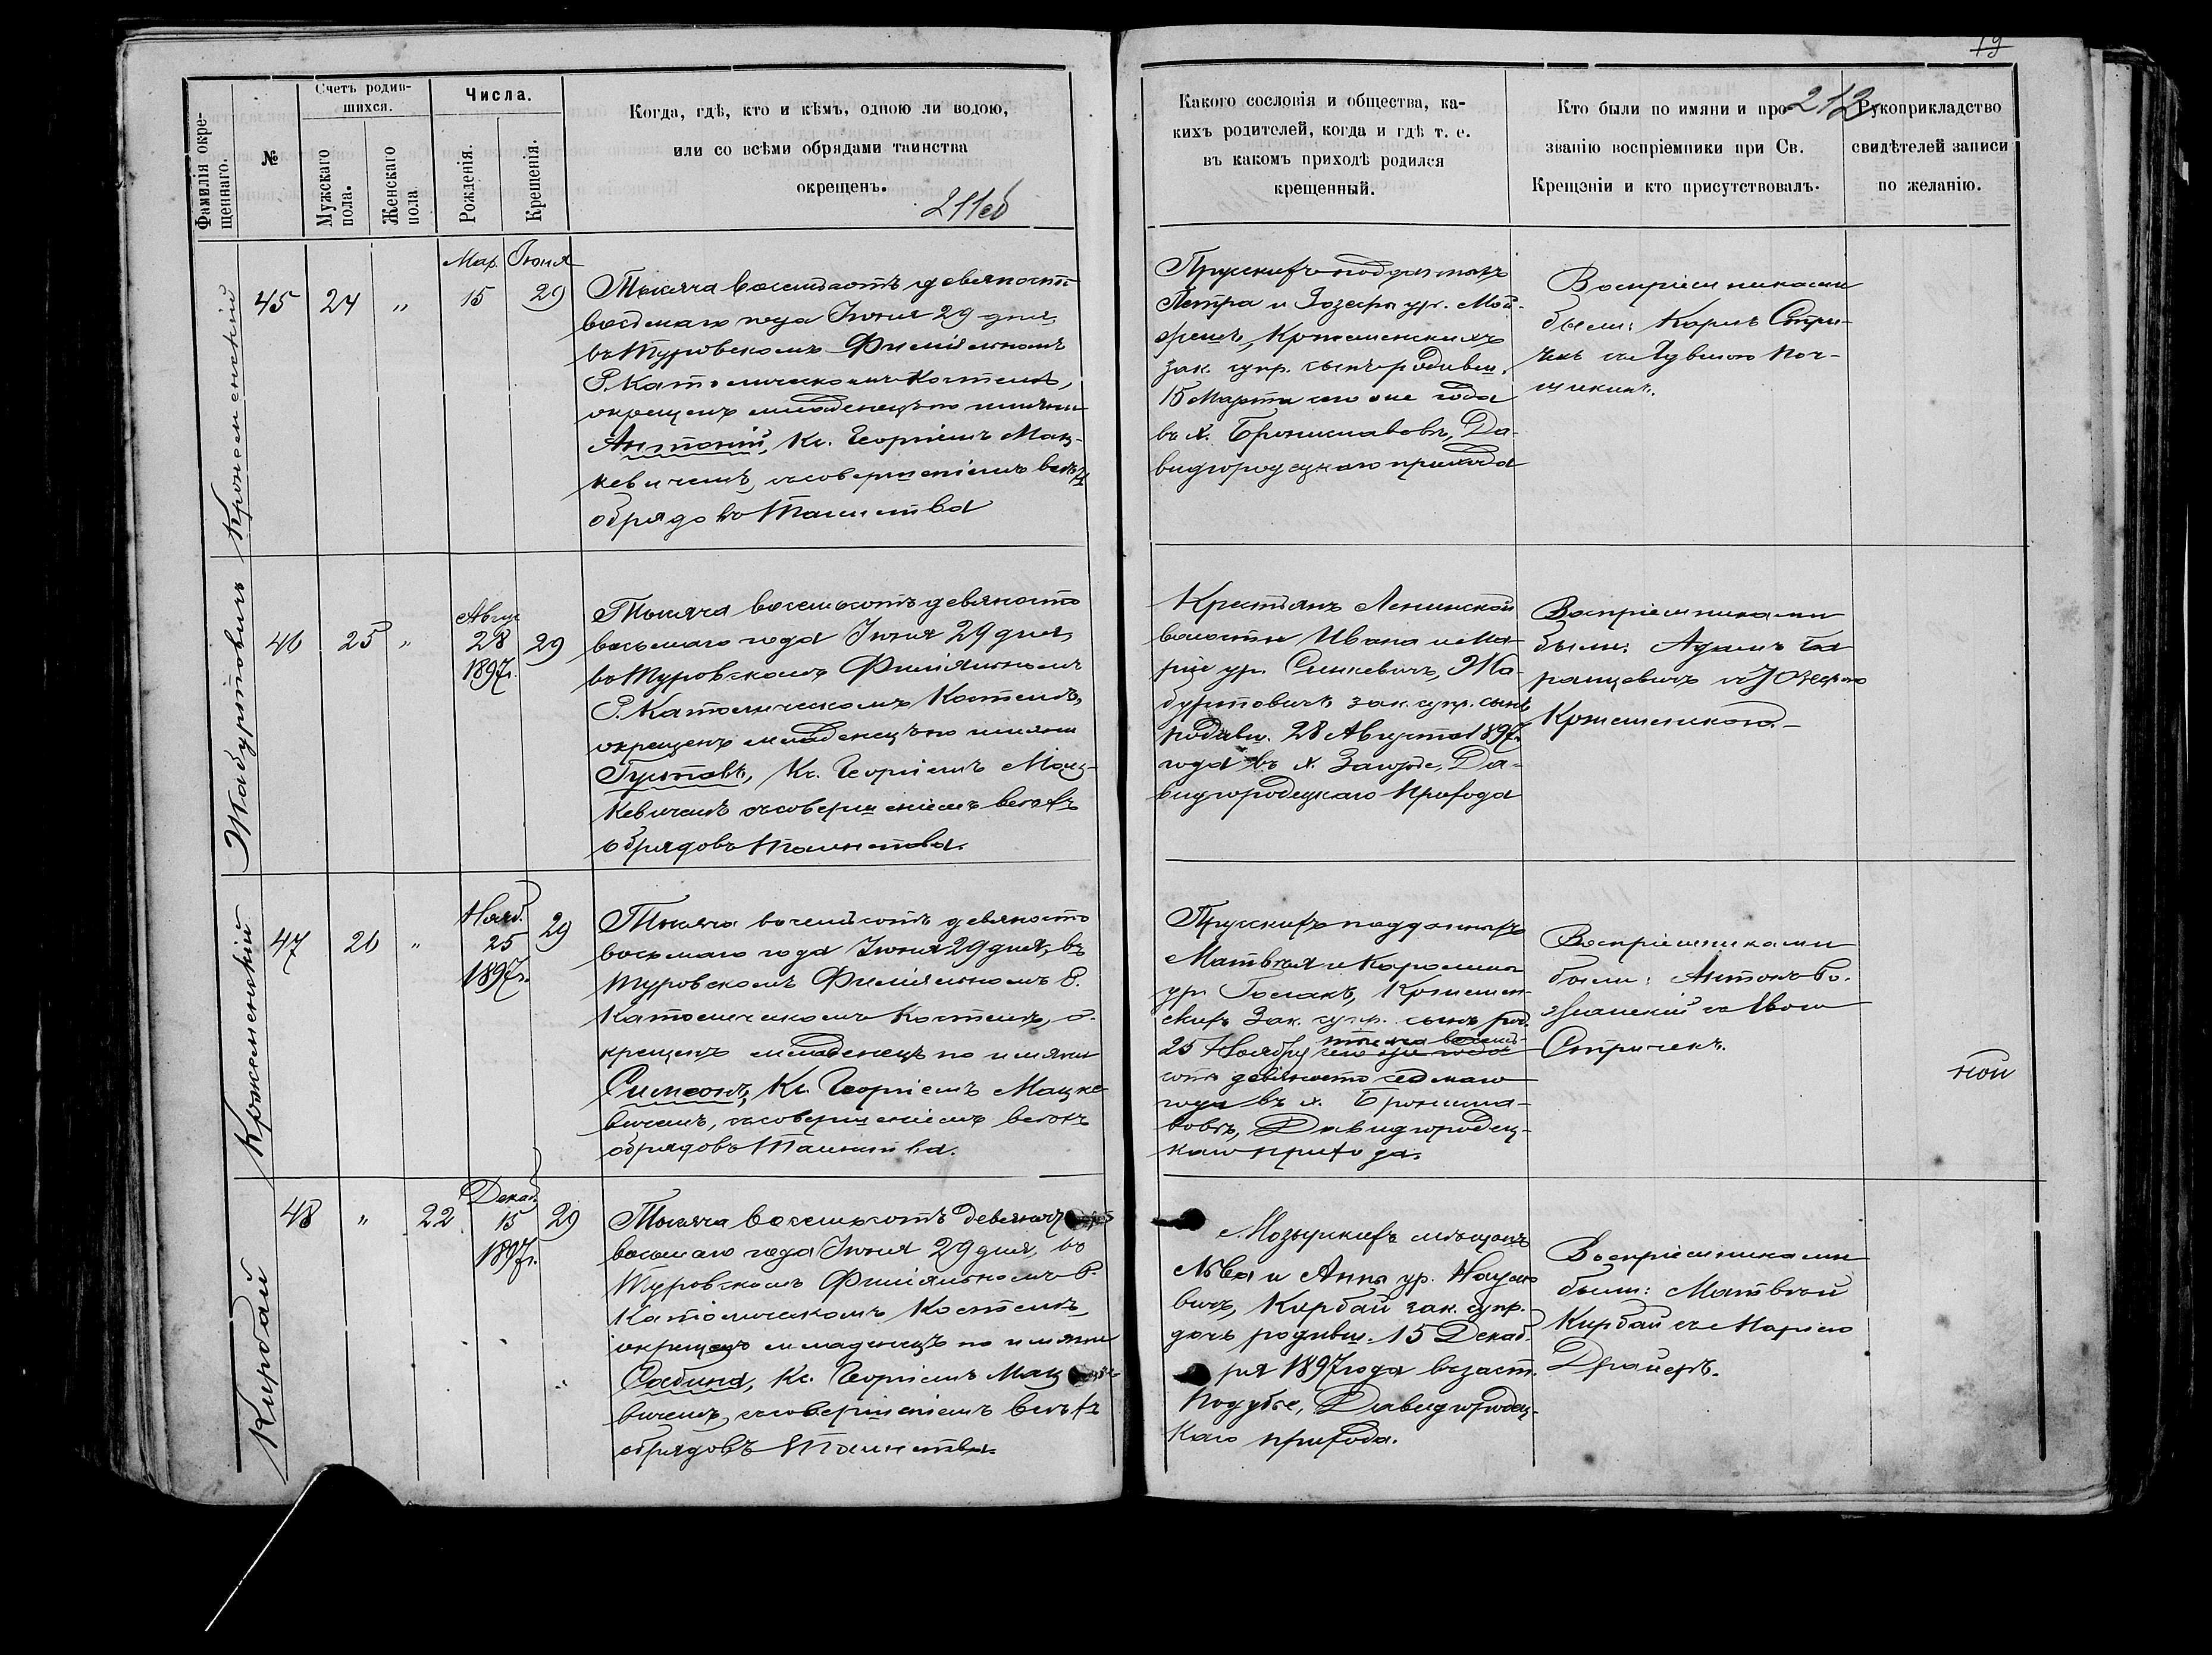 19
212
Фамилія окре-
щеннаго.
№
Счетъ родив-
шихся.
Мужскаго
пола.
Женскаго
пола
Числа.
Рожденія.
Крещенія.
Когда, гдѣ, кто и кѣмъ, одною ли водою,
или со всѣми обрядами таинства
окрещенъ.
211об
Какого сословія и общества, ка-
кихъ родителей, когда и гдѣ т. е.
въ какомъ приходѣ родился
крещенный.
Кто были по имяни и про-
званію воспріемники при Св.
Крещэніи и кто присутствовалъ.
Рукоприкладство
свидѣтелей записи
по желанію.
45 24 „
Мар. Іюня
15 29
Тысяча восемьсотъ девяносто
восьмаго года Іюня 29 дня,
въ Туровскомъ Филіяльномъ
Р. Католическомъ Костелѣ,
окрещенъ младенецъ по имяни
Антоній, Кс. Георгіемъ Мац-
кевичемъ, съ совершеніемъ всѣхъ
обрядовъ Таинства
Прусскихъ подданныхъ
Петра и Іозефы ур.
зак. супр. сынъ родивш.
15 Марта сего же года
въ х. Брониславовъ, Да-
видгородецкаго прихода
Воспріемниками
были: Карлъ Стри-
чекъ
Жабуртовичъ
46 25 „
Авгус
28
1897г.
29
Тысяча восемьсотъ девяносто
восьмаго года Іюня 29 дня,
въ Туровскомъ Филіяльномъ
Р. Католическомъ Костелѣ,
окрещенъ младенецъ по имяни
Густавъ, Кс. Георгіемъ Мац-
кевичемъ съ совершеніемъ всѣхъ
обрядовъ Таинства.
Крестьянъ Ленинской
волости Ивана и Ма-
ріи ур. Синкевичъ, Жа-
буртовичъ зак. супр. сынъ
родивш. 28 Августа 1897г.
года въ х. Загорье, Да-
видгородецкаго прихода
Воспріемниками
были: Адамъ Ба
ранцевичъ съ Юзефою
47 26 „
Нояб.
25
1897г.
29
Тысяча восемьсотъ девяносто
восьмаго года Іюня 29 дня, въ
Туровскомъ Филіяльномъ Р.
Католическомъ Костелѣ, о-
крещенъ младенецъ по имяни
Симеонъ, Кс. Георгіемъ Мацке-
вичемъ, съ совершеніемъ всѣхъ
обрядовъ Таинства.
Прусскихъ подданныхъ
Матвѣя и Каролины
зак. супр. сынъ род.
тысяча восемь-
25 Ноября сего же года
сотъ девяносто седьмаго
года въ х. Бронисла-
вовъ, Давидгородец-
каго прихода.
Воспріемниками
были: Антонъ
съ Евою
Стричекъ.
Кирбай
48 „ 22
Декаб.
15
1897г.
29
Тысяча восемьсотъ девяносто
восьмаго года Іюня 29 дня, въ
Туровскомъ Филіяльномъ Р.
Католическомъ Костелѣ
окрещенъ младенецъ по имяни
Сабина, Кс. Георгіемъ Мацке
вичемъ, съ совершеніемъ всѣхъ
обрядовъ Таинства.
Мозырскихъ мѣщанъ
Льва и Анны ур.
Кирбай зак. супр.
дочь родивш. 15 Декаб-
ря 1897 года въ заст.
Подубье, Давидгородец-
каго прихода.
Воспріемниками
были: Матвѣй
Кирбай съ Маріею
Драйеръ.